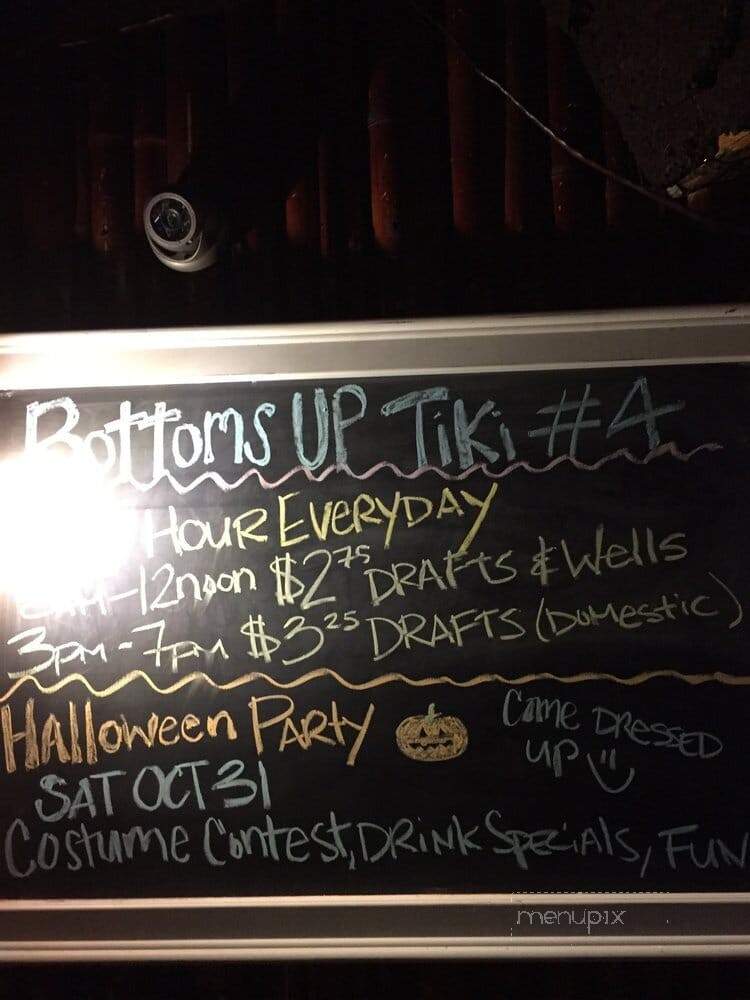 Bottoms UP Tiki #4
HOUR EVERYDAY
-12noon $2.75 DRAFTS & Wells
3pm-7pm $3.25 DRAFTS (DOMESTIC)
Halloween PARTY
Come DRESSED
UP
SAT OCT 31
Costume Contest, DRINK SPECIALS, FUN
menupix